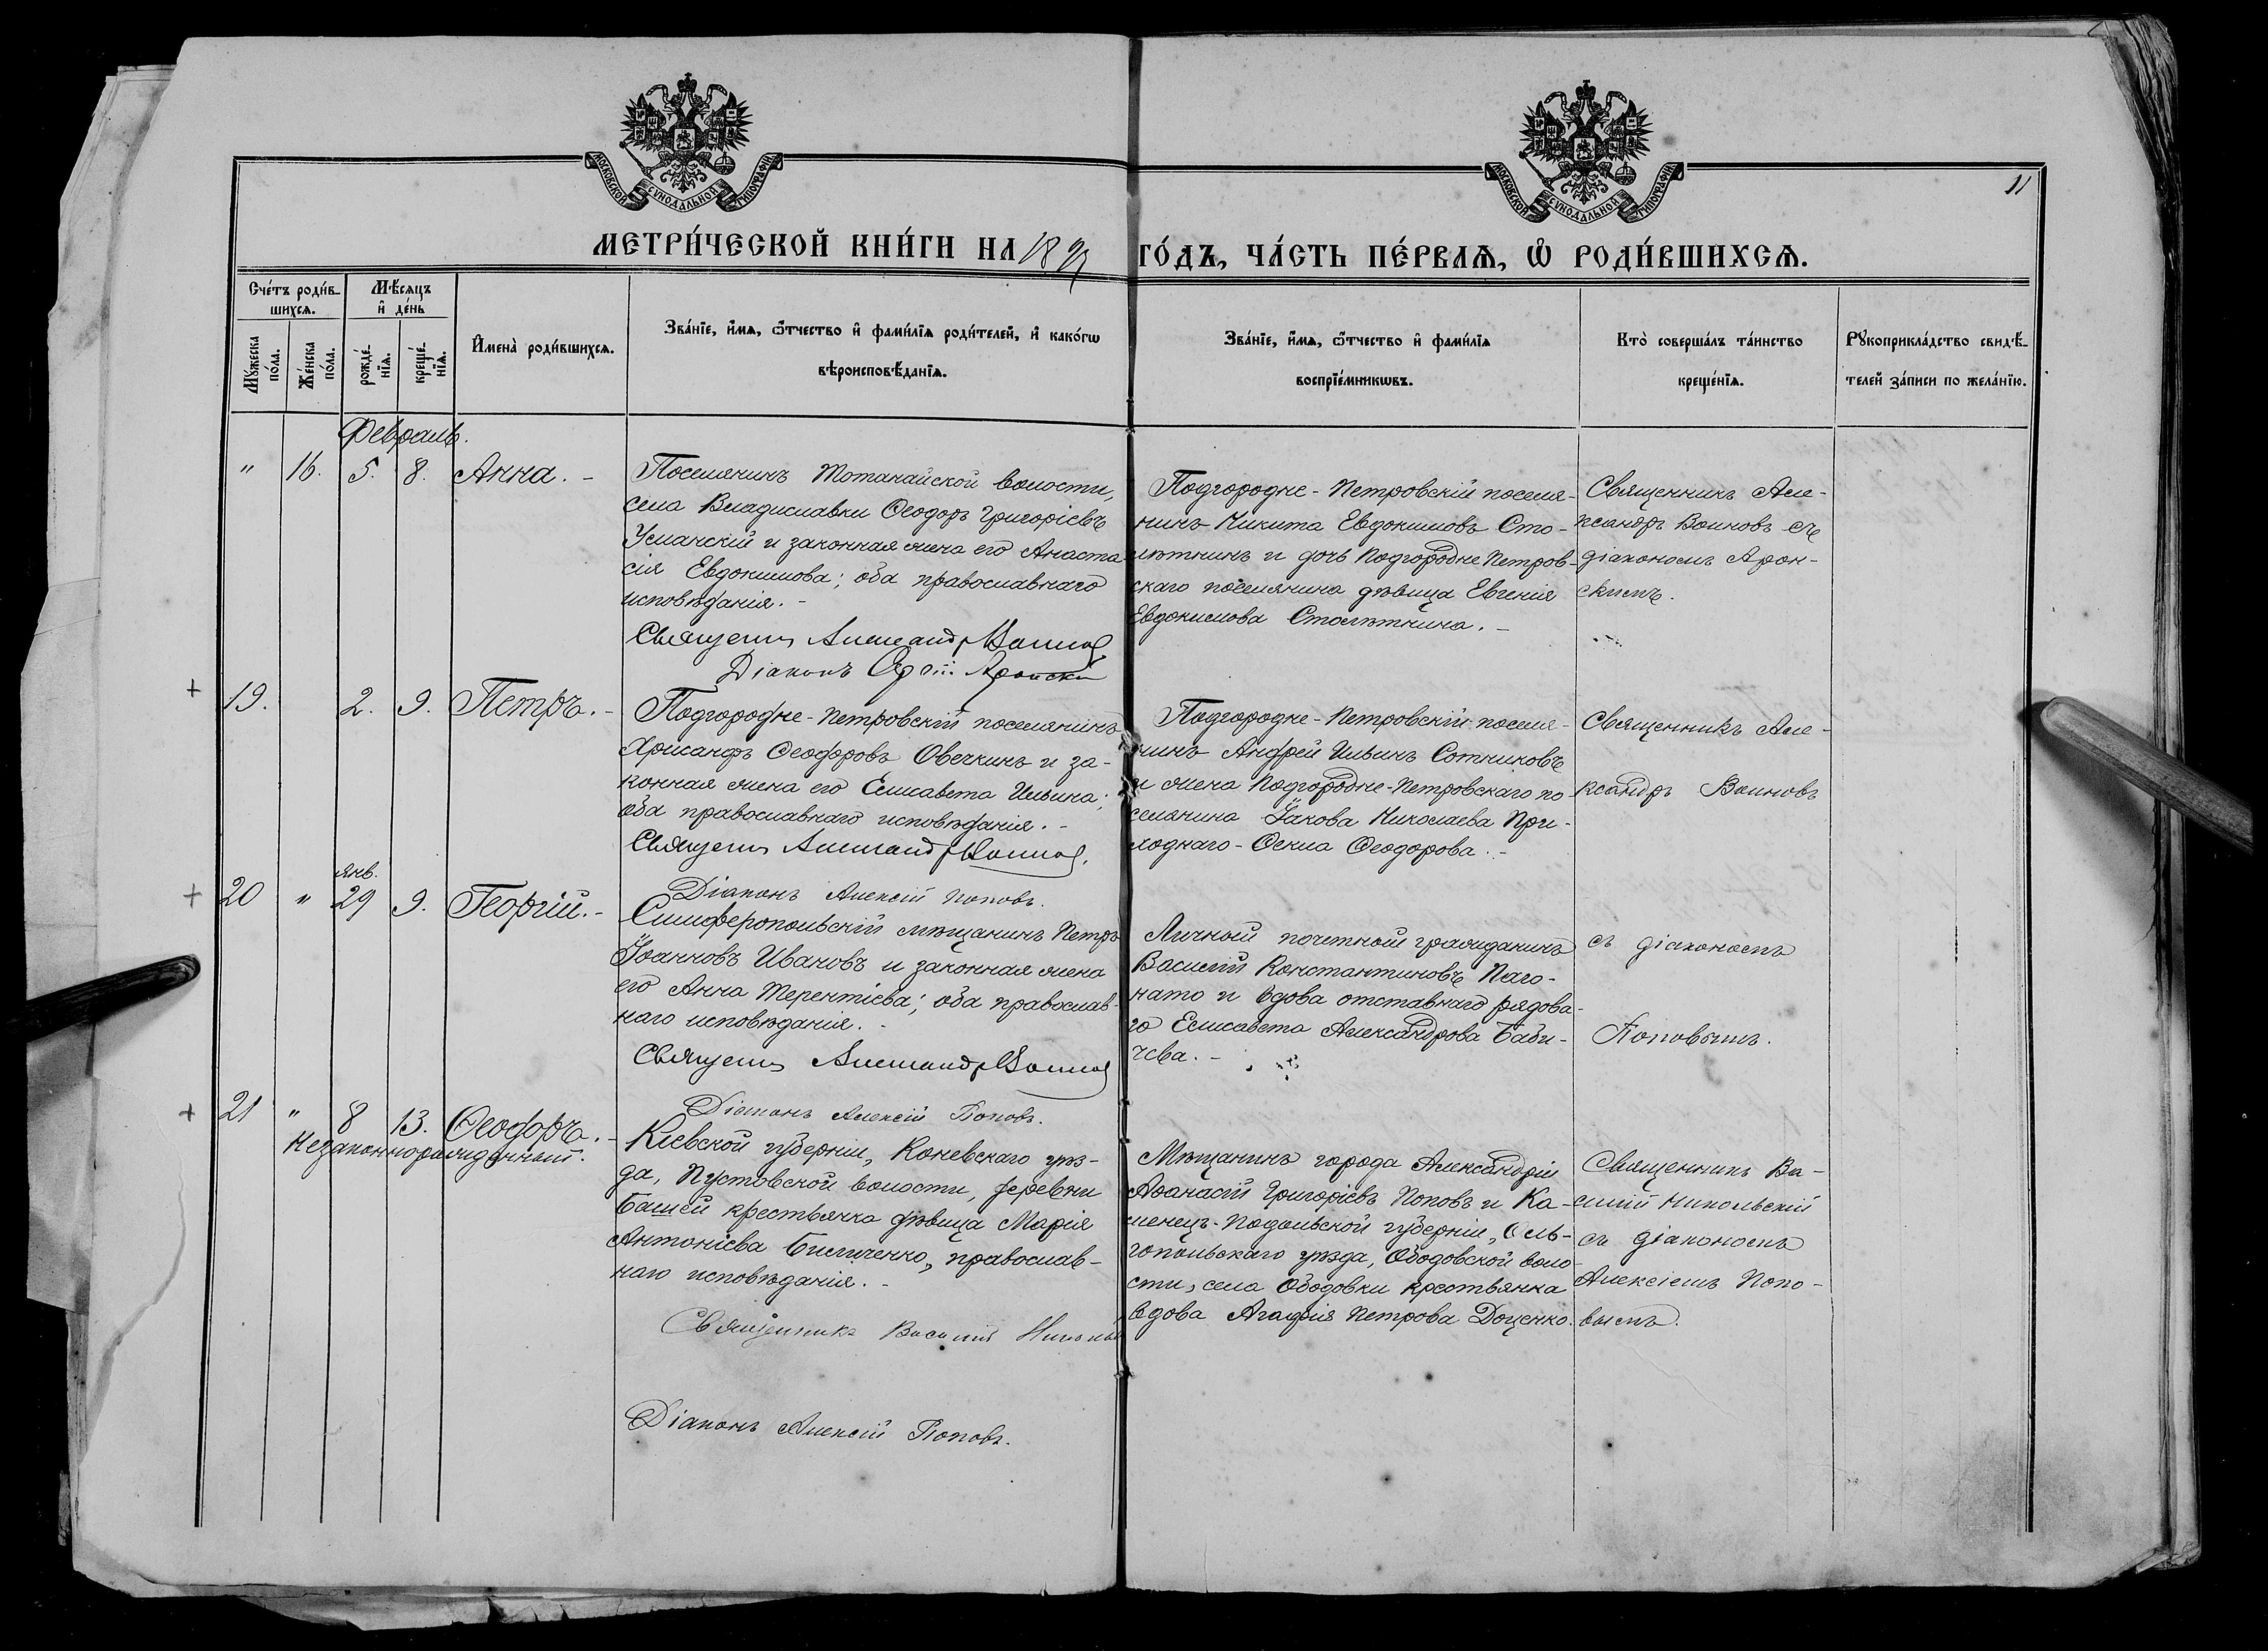 МОСКОВСКОЙ СѴНОДАЛЬНОЙ ТИПОГРАФІИ
МОСКОВСКОЙ СѴНОДАЛЬНОЙ ТИПОГРАФІИ
11
МЕТРИ́ЧЕСКОЙ КНИ́ГИ НА
ГО́ДЪ, ЧА́СТЬ ПЕ́РВАѦ, Ѡ҆ РОДИ́ВШИХСѦ.
Сче́тъ роди́в-
шихсѧ.
Мѣ́сѧцъ
и҆ де́нь
Мꙋ́жеска
по́ла.
Же́нска
по́ла.
рожде́-
нїѧ.
креще́-
нїѧ.
И҆мена̀ роди́вшихсѧ.
Зва́нїе, и҆́мѧ, ѻ҆́тчество и҆ фами́лїѧ роди́телей, и҆ како́гѡ
вѣроисповѣ́данїѧ.
Зва́нїе, и҆́мѧ, ѻ҆́тчество и҆ фами́лїѧ
воспрїе́мникѡвъ.
Кто̀ соверша́лъ та́инство
креще́нїѧ.
Рꙋкоприкла́дство свидѣ́-
телей за́писи по жела́нїю.
Февраль.
" 16. 5. 8. Анна. -
Поселянинъ Тотанайской волости,
села Владиславки Ѳеодоръ Григоріевъ
Усманскій и законная жена его Анаста
сія Евдокимова; оба православнаго
исповѣданія. -
Священн Александръ Воинов
Діаконъ Аронскій
Подгородне-Петровскій поселя-
нинъ Никита Евдокимовъ Сто-
лѣтнинъ и дочь Подгородне Петров-
скаго поселянина дѣвица Евгенія
Евдокимова Столѣтнина. -
Священникъ Але-
ксандръ Воиновъ съ
діакономъ Арон-
скимъ.
+ 19. 2. 9. Петръ. -
Подгородне-Петровскій поселянинъ
Хрисанфъ Ѳеодоровъ Овечкинъ и за-
конная жена его Елисавета Ильина;
оба православнаго исповѣданія. -
Священн Александръ Воинов.
Діаконъ Алексій Поповъ.
Подгородне-Петровскій поселя-
нинъ Андрей Ильинъ Сотниковъ
и жена Подгородне-Петровскаго по
селянина Іакова Николаева При-
ходнаго - Ѳекла Ѳеодорова. -
Священникъ Але-
ксандръ Воиновъ
янв.
+ 20 " 29 9. Георгій. -
Симферопольскій мѣщанинъ Петръ
Іоанновъ Ивановъ и законная жена
его Анна Терентіева; оба православ-
наго исповѣданія. -
Священн Александръ Воинов
Діаконъ Алексій Поповъ.
Личный почетный гражданинъ
Василій Константиновъ Паго-
нато и вдова отставнаго рядова-
го Елисавета Александрова Баби-
чева. -
съ діакономъ
Поповымъ.
+ 21 " 8 13. Ѳеодоръ. -
Незаконнорожденный.
Кіевской губерніи, Каневскаго уѣз-
да, Пустовской волости, деревни
крестьянка дѣвица Марія
Антоніева Бисличенко, православ-
наго исповѣданія. -
Священникъ Василій
Діаконъ Алексій Поповъ.
Мѣщанинъ города Александріи
Аѳанасій Григоріевъ Поповъ и Ка-
менецъ-Подольской губерніи, Оль-
гопольскаго уѣзда, Ободовской воло-
сти, села Ободовки крестьянка
вдова Агафія Петрова Доценко.
Священникъ Ва-
силій Никольскій
съ діакономъ
Алексіемъ Попо-
вымъ.